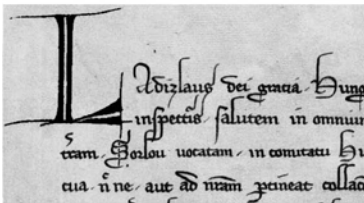 Ladizlaus dei gracia. Hung
inspectis. salutem in omnium
tram. Sorlou uocatam. in comitatu Hu
aut ad nram ptineat collac